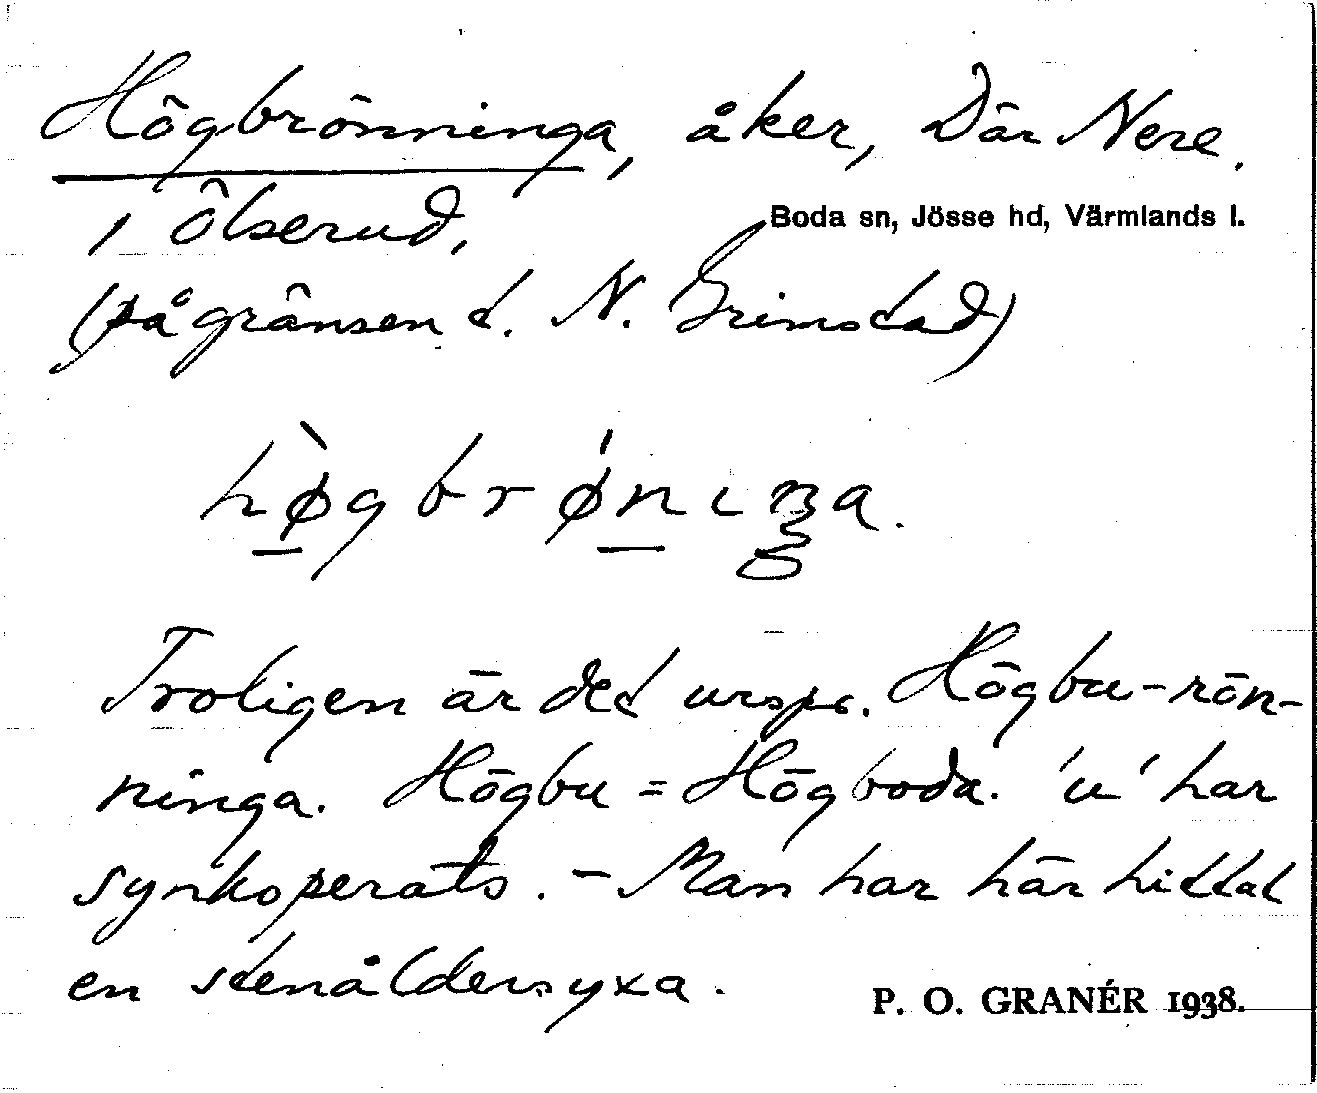 Högbrönninga, åker, Där Nere.
i Ölserud,
Boda sn, Jösse hd, Värmlands l.
(på gränsen t. N. Grimstad)
hø̀gbrǿniŋa.
Troligen är det urspr. Högbu-rön-
ninga. Högbu = Högboda. 'u' har
synkoperats. - Man har här hittat
en stenåldersyxa.
P. O. GRANÉR 1938.